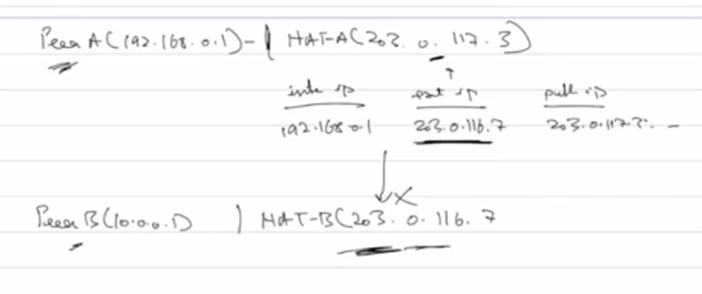 Peer A (192.168.0.1) - | NAT-A (203.0.117.3)
inte ip ext ip pub ip
192.168.0.1 203.0.116.7 203.0.117.3.
X
Peer B (10.0.0.1) | NAT-B (203.0.116.7